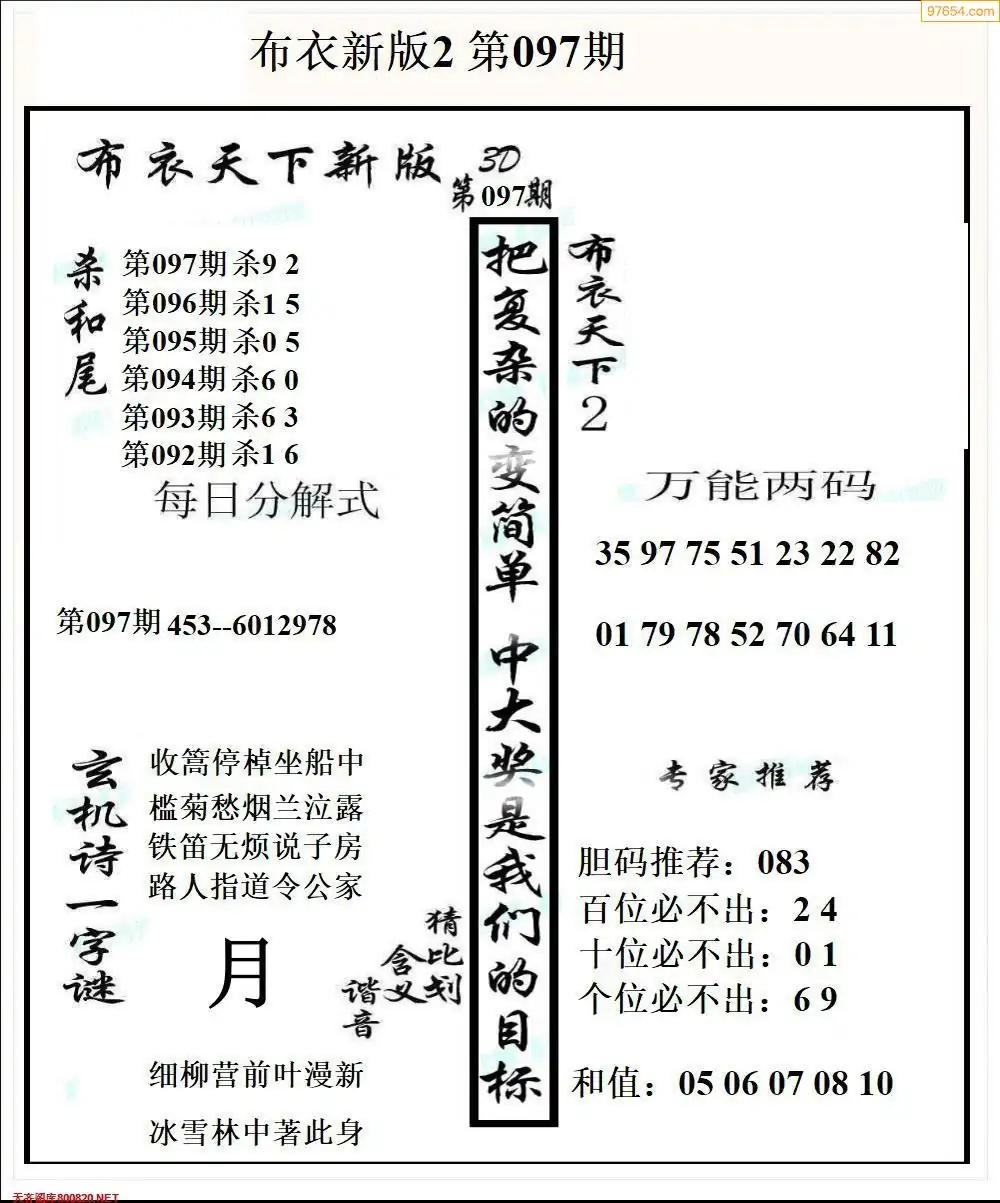 97654.com
布衣新版2 第097期
布衣天下新版
3D
第097期
杀和尾
第097期 杀9 2
第096期 杀1 5
第095期 杀0 5
第094期 杀6 0
第093期 杀6 3
第092期 杀1 6
每日分解式
第097期 453--6012978
把复杂的变简单 中大奖是我们的目标
布衣天下2
万能两码
35 97 75 51 23 22 82
01 79 78 52 70 64 11
玄机诗一字谜
收篙停棹坐船中
槛菊愁烟兰泣露
铁笛无烦说子房
路人指道令公家
月
猜比划
含义
谐音
细柳营前叶漫新
冰雪林中著此身
专家推荐
胆码推荐：083
百位必不出：2 4
十位必不出：0 1
个位必不出：6 9
和值：05 06 07 08 10
天齐图库800820.NET